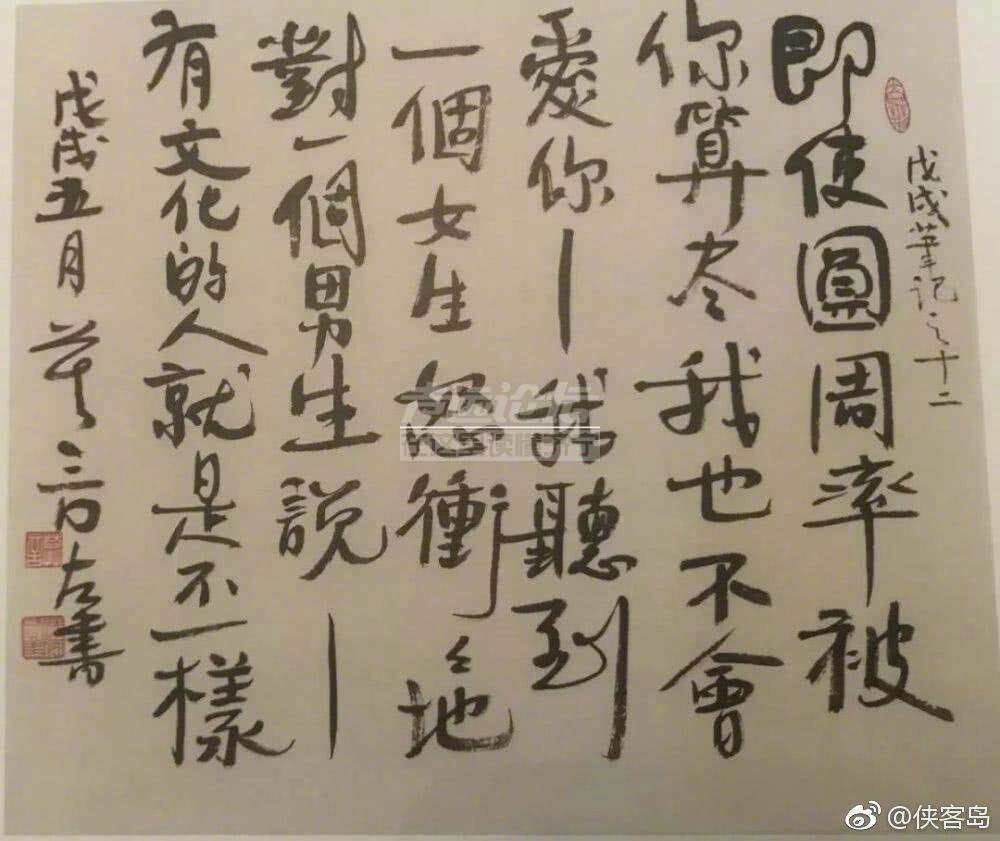 戊戌筆記之十二
即使圓周率被
你算尽我也不會
愛你－我聽到
一個女生怒衝々地
對一個男生説－
有文化的人就是不一樣
戊戌五月 三 左書
@侠客岛